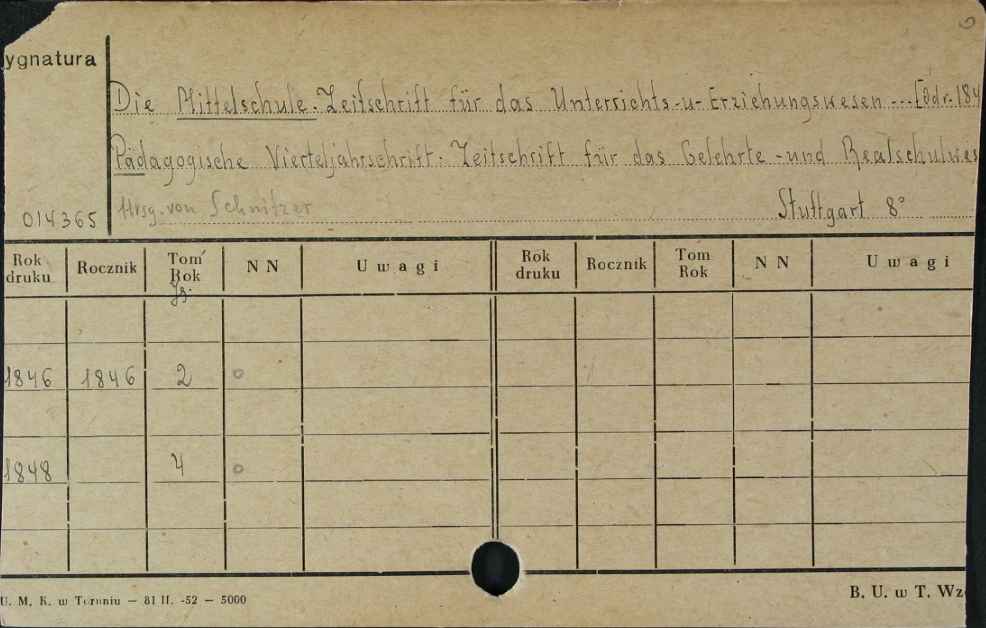 ygnatura
Die Mittelschule. Zeitschrift für das Unterrichts-u-Erziehungswesen ... [Odr. 184
Pädagogische Vierteljahrschrift. Zeitschrift für das Gelehrte-und Realschulwes
014365 Hrsg. von Schnitzer Stuttgart 8°
Rok druku Rocznik Tom Rok Jg. NN Uwagi Rok druku Rocznik Tom Rok NN Uwagi
1846 1846 2 o
1848 4 o
U. M. K. w Toruniu — 81 II. -52 — 5000
B. U. w T. Wz